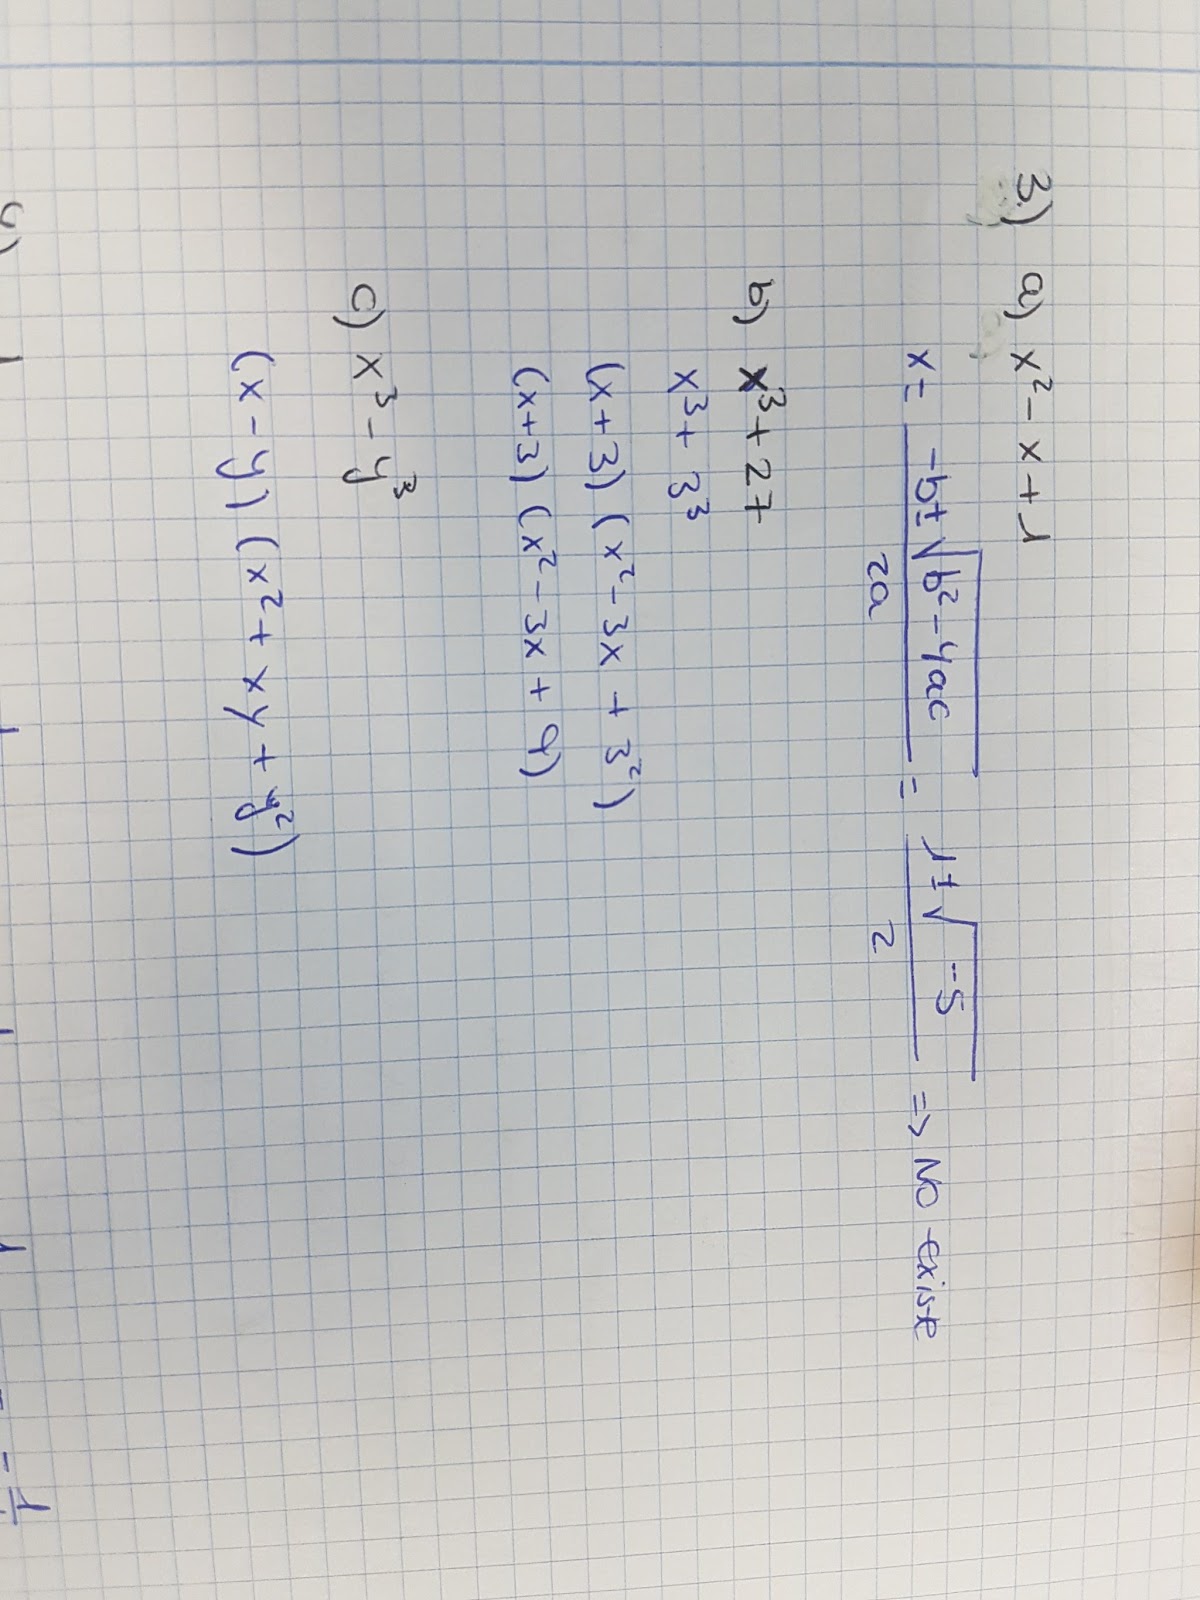 3.) a) x² - x + 1
x = (-b ± √(b² - 4ac)) / 2a = (1 ± √(-5)) / 2 => No existe
b) x³ + 27
x³ + 3³
(x + 3) (x² - 3x + 3²)
(x + 3) (x² - 3x + 9)
c) x³ - y³
(x - y) (x² + xy + y²)